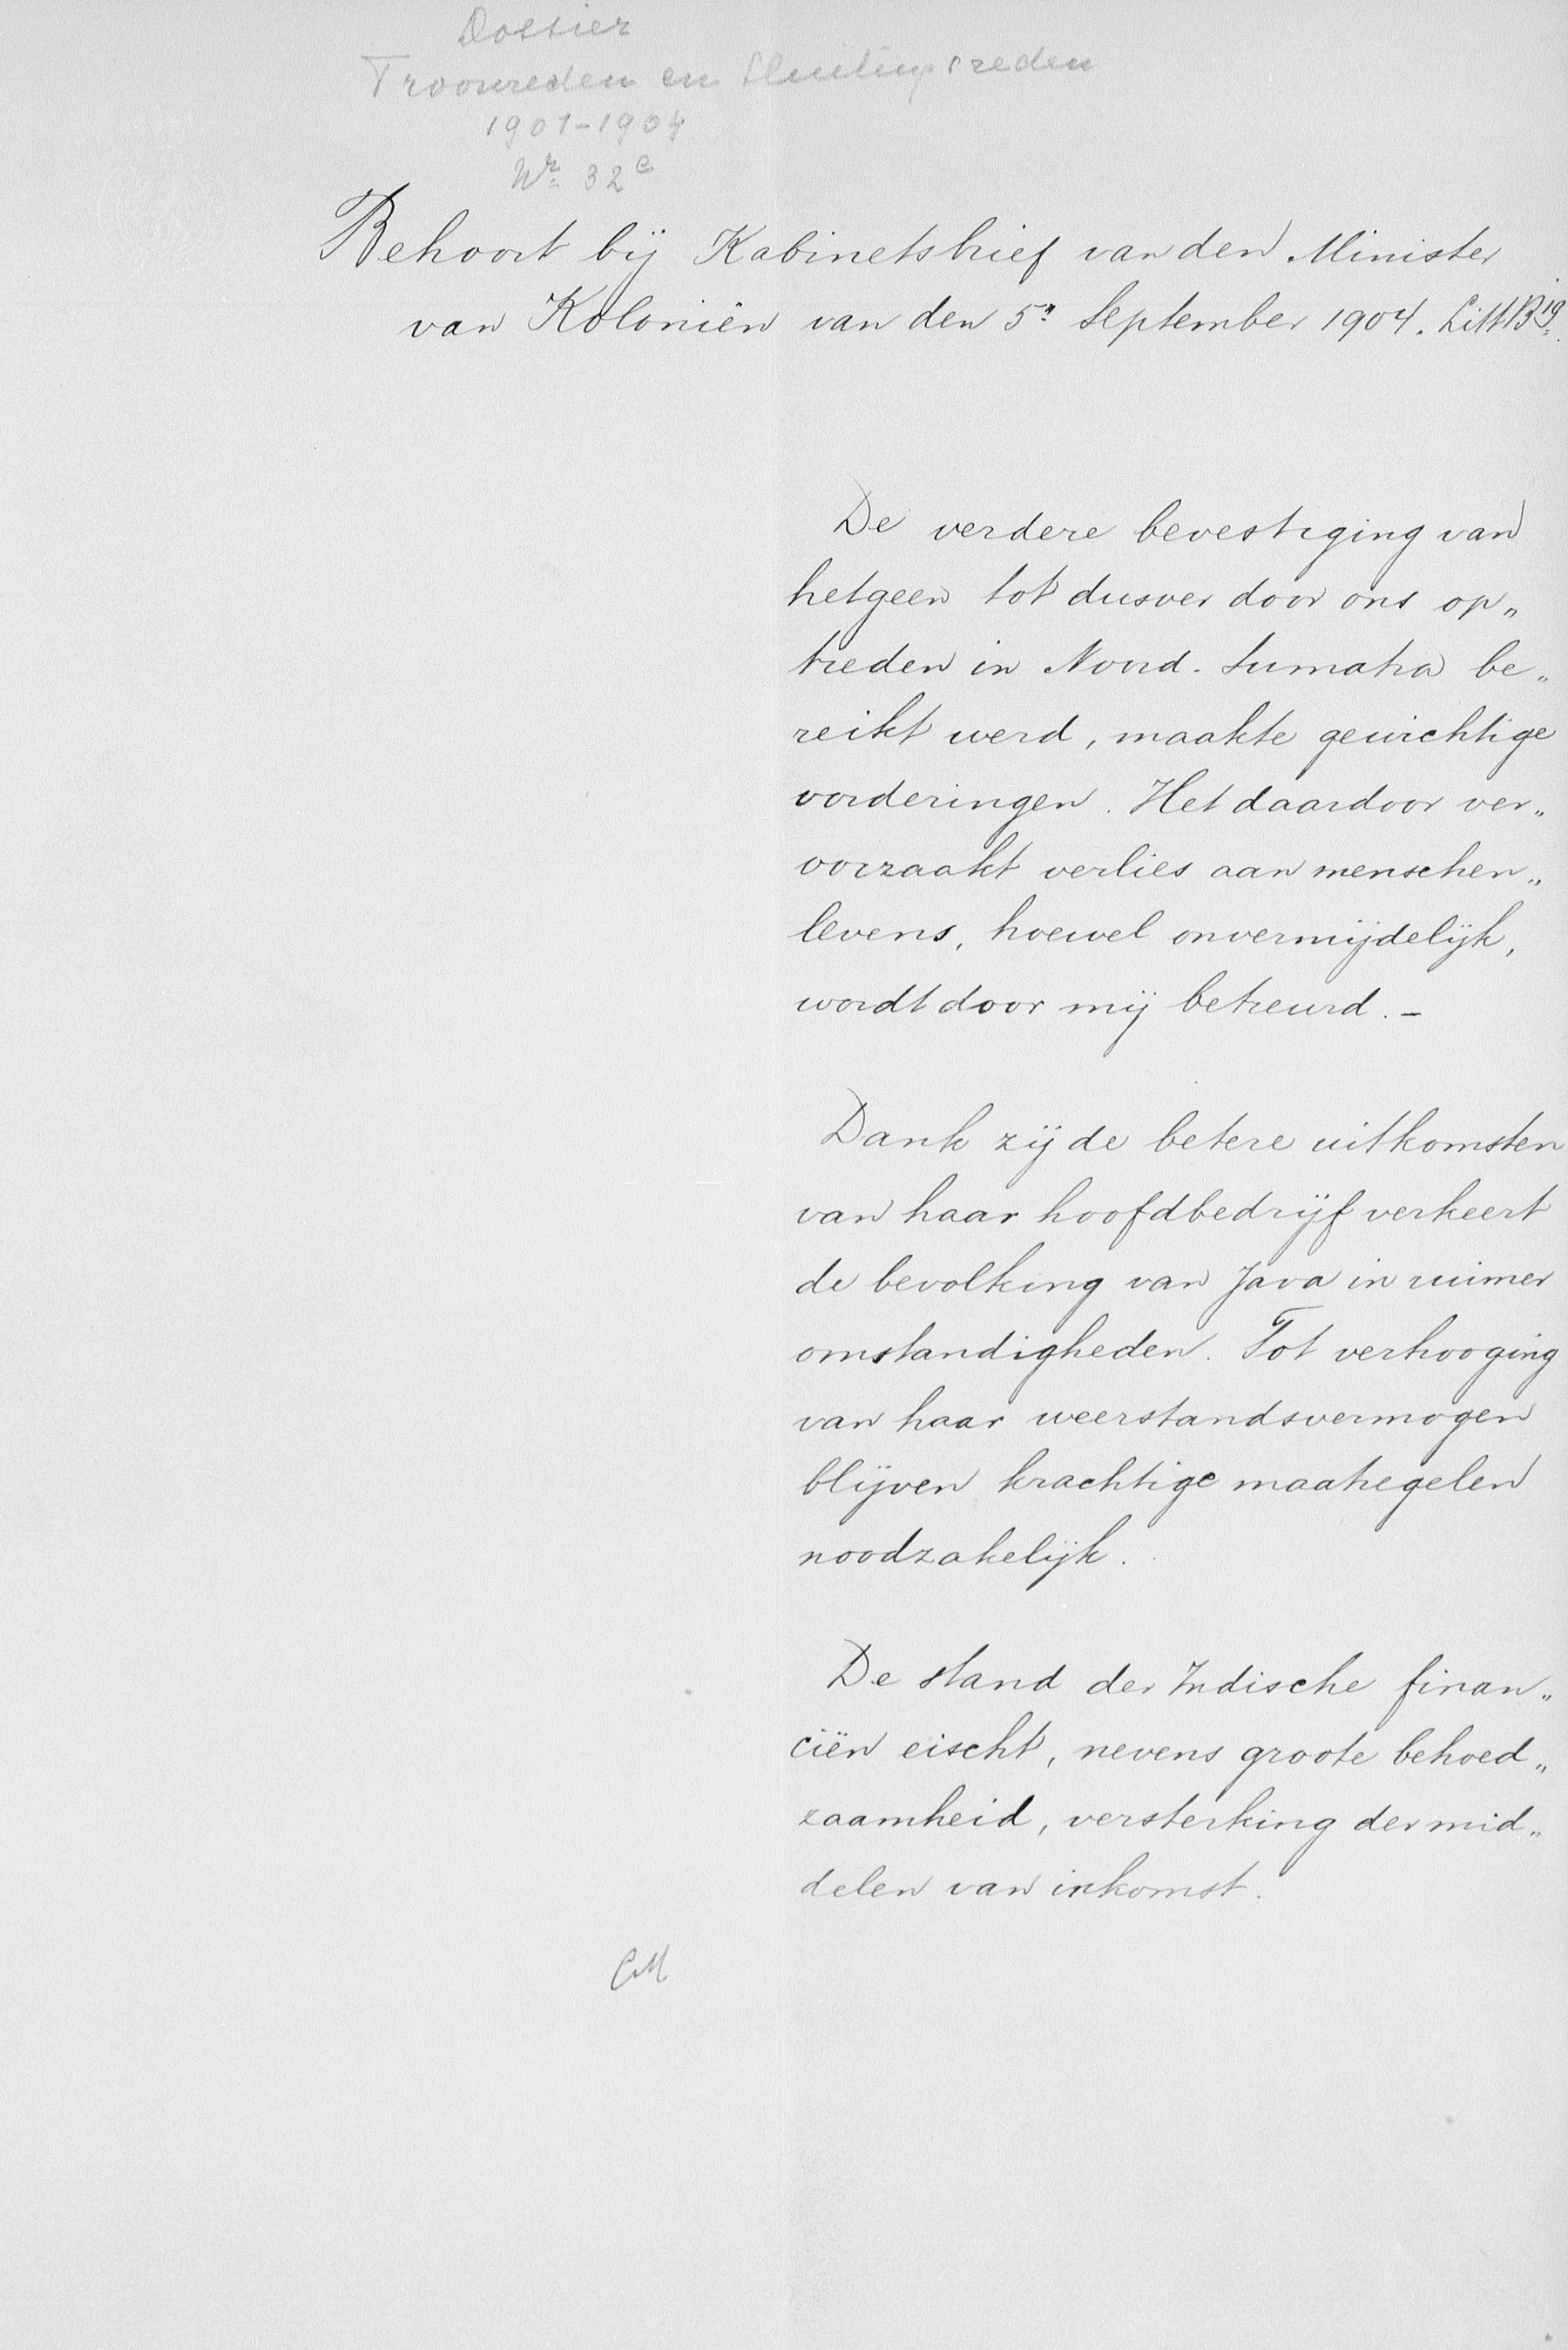 Dossier
Troonreden en Sluitingsreden
1901-1904
Nr 32e
Behoort bij Kabinetsbrief van den Minister
van Koloniën van den 5n September 1904. Litt B19.
De verdere bevestiging van
hetgeen tot dusver door ons op„
treden in Noord-Sumatra be„
reikt werd, maakte gewichtige
vorderingen. Het daardoor ver„
oorzaakt verlies aan menschen„
levens, hoewel onvermijdelijk,
wordt door mij betreurd. -
Dank zij de betere uitkomsten
van haar hoofdbedrijf verkeert
de bevolking van Java in ruimer
omstandigheden. Tot verhooging
van haar weerstandsvermogen
blijven krachtige maatregelen
noodzakelijk.
De stand der Indische finan„
ciën eischt, nevens groote behoed„
zaamheid, versterking der mid„
delen van inkomst.